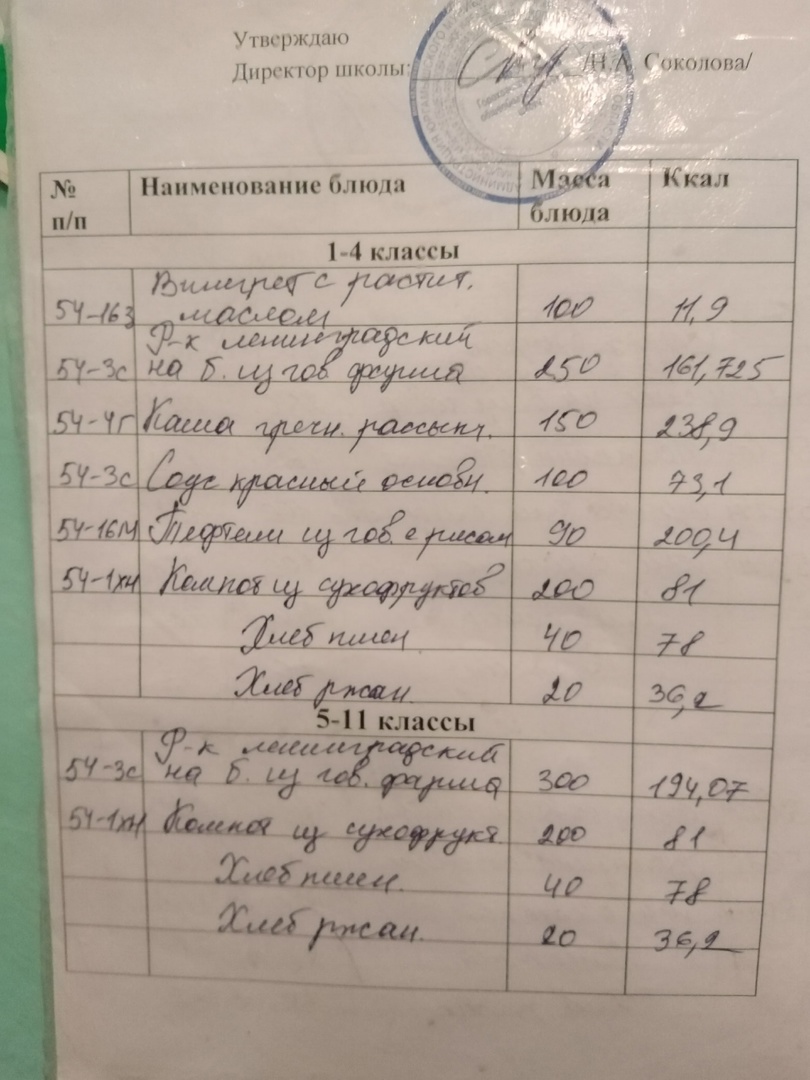 Утверждаю
Директор школы: /Н.А. Соколова/
№ п/п Наименование блюда Масса блюда Ккал
1-4 классы
54-16з Винегрет с растит. маслом 100 11,9
54-3с Р-к ленинградский на б. из гов. фарша 250 161,725
54-4г Каша гречн. рассыпч. 150 238,9
54-3с Соус красный основн. 100 73,1
54-16м Тефтели из гов. с рисом 90 200,4
54-1хн Компот из сухофруктов 200 81
Хлеб пшен 40 78
Хлеб ржан. 20 36,2
5-11 классы
54-3с Р-к ленинградский на б. из гов. фарша 300 194,07
54-1хн Компот из сухофрукт 200 81
Хлеб пшен. 40 78
Хлеб ржан. 20 36,2